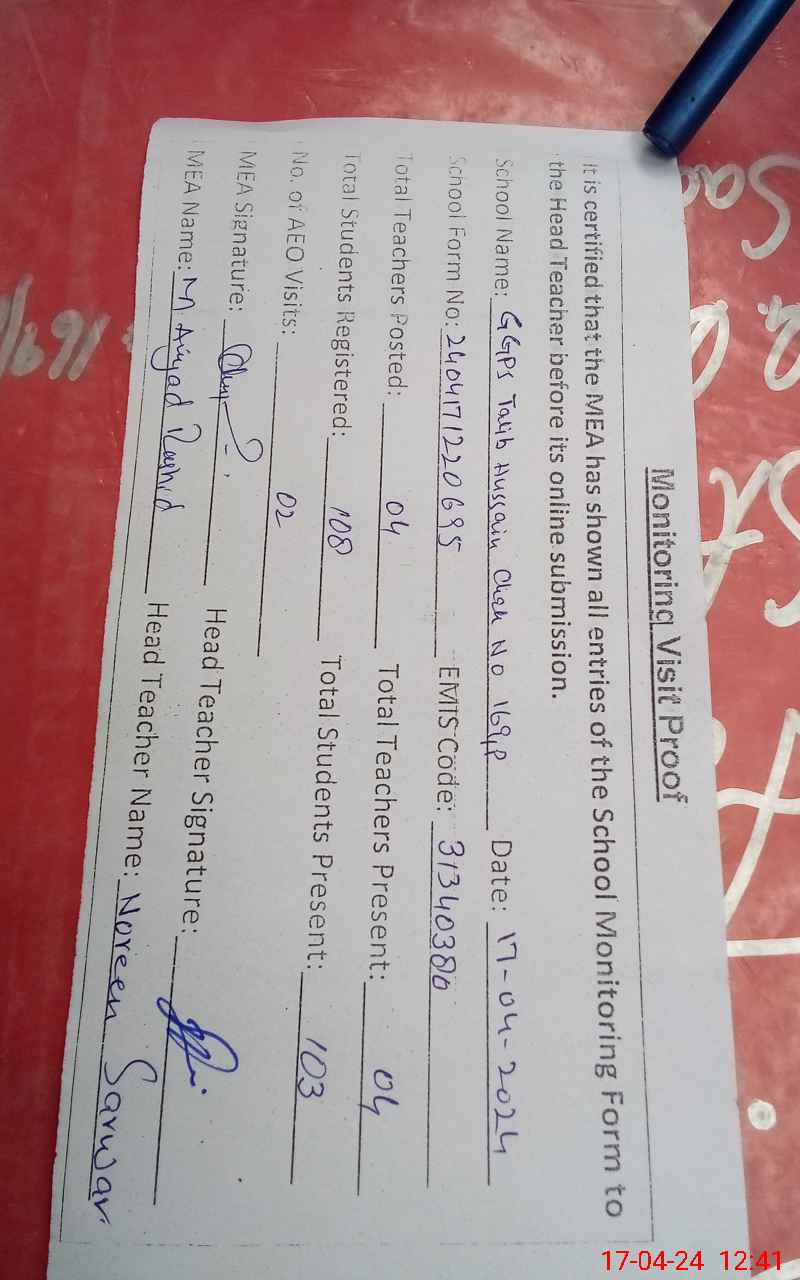 Monitoring Visit Proof
It is certified that the MEA has shown all entries of the School Monitoring Form to
the Head Teacher before its online submission.
School Name: GGPS Talib Hussain Chak No 169,P Date: 17-04-2024
School Form No: 2404171220695 EMIS Code: 31340380
Total Teachers Posted: 04 Total Teachers Present: 04
Total Students Registered: 108 Total Students Present: 103
No. of AEO Visits: 02
MEA Signature: Head Teacher Signature:
MEA Name: M Rashid Head Teacher Name: Noreen Sarwar
17-04-24 12:41